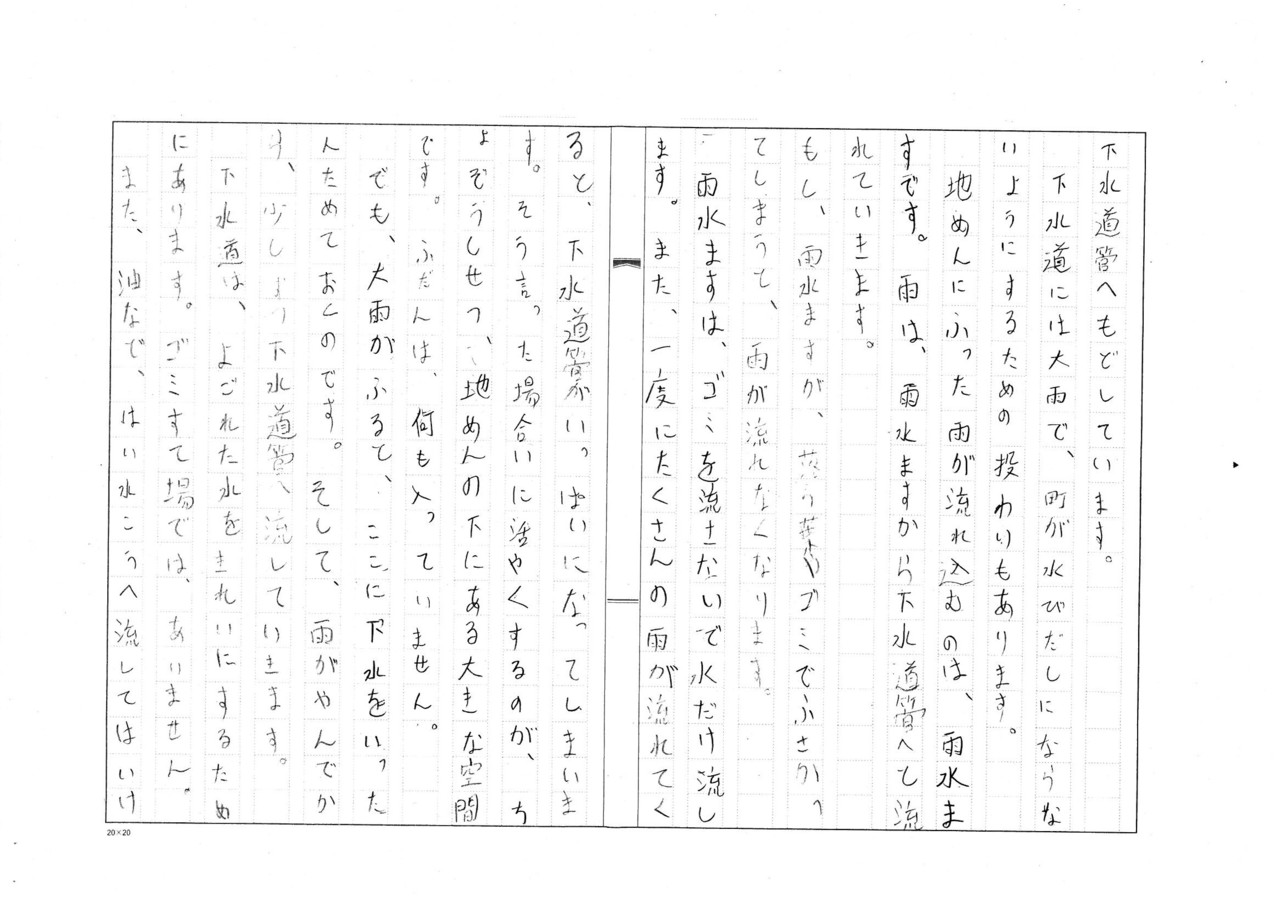 下水道管へもどしています。
下水道には大雨で、町が水びだしにならな
いようにするための投わりもあります。
地めんにふった雨が流れ込むのは、雨水ま
すです。雨は、雨水ますから下水道管へと流
れていきます。
もし、雨水ますが、落ち葉やゴミでふさがっ
てしまうと、雨が流れなくなります。
雨水ますは、ゴミを流さないで水だけ流し
ます。また、一度にたくさんの雨が流れてく
ると、下水道管がいっぱいになってしまいま
す。そう言った場合いに活やくするのが、ち
ょぞうしせつ、地めんの下にある大きな空間
です。ふだんは、何も入っていません。
でも、大雨がふると、ここに下水をいった
んためておくのです。そして、雨がやんでか
ら、少しずつ下水道管へ流していきます。
下水道は、よごれた水をきれいにするため
にあります。ゴミすて場では、ありません。
また、油なで、はい水こうへ流してはいけ
20×20